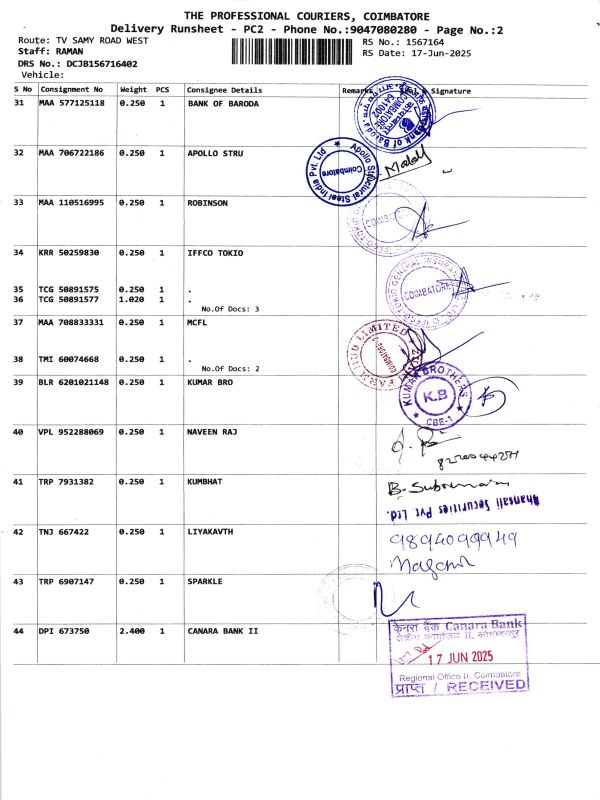 THE PROFESSIONAL COURIERS, COIMBATORE
Delivery Runsheet - PC2 - Phone No.:9047080280 - Page No.:2
Route: TV SAMY ROAD WEST
RS No.: 1567164
Staff: RAMAN
RS Date: 17-Jun-2025
DRS No.: DCJB156716402
Vehicle:
S No Consignment No Weight PCS Consignee Details Remarks & Signature
31 MAA 577125118 0.250 1 BANK OF BARODA
Bank of Baroda
COIMBATORE
641002
32 MAA 706722186 0.250 1 APOLLO STRU
Apollo Structural Steel India Pvt. Ltd
Coimbatore
33 MAA 110516995 0.250 1 ROBINSON
COIMBATORE
34 KRR 50259830 0.250 1 IFFCO TOKIO
COIMBATORE
35 TCG 50891575 0.250 1 .
36 TCG 50891577 1.020 1 .
No.Of Docs: 3
37 MAA 708833331 0.250 1 MCFL
LIMITED
38 TMI 60074668 0.250 1 .
No.Of Docs: 2
39 BLR 6201021148 0.250 1 KUMAR BRO
KUMAR BROTHERS
K.B
CBE-1
40 VPL 952288069 0.250 1 NAVEEN RAJ
41 TRP 7931382 0.250 1 KUMBHAT
Securities Pvt Ltd.
42 TNJ 667422 0.250 1 LIYAKAVTH
9894099949
43 TRP 6907147 0.250 1 SPARKLE
44 DPI 673750 2.400 1 CANARA BANK II
केनरा बैंक Canara Bank
17 JUN 2025
Regional Office II, Coimbatore
प्राप्त / RECEIVED